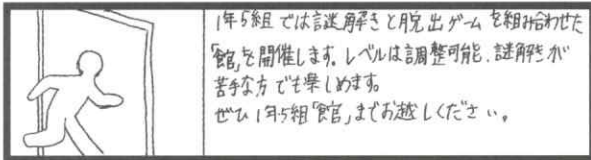 1年5組では謎解きと脱出ゲームを組み合わせた
「館」を開催します。レベルは調整可能、謎解きが
苦手な方でも楽しめます。
ぜひ1年5組「館」までお越しください。